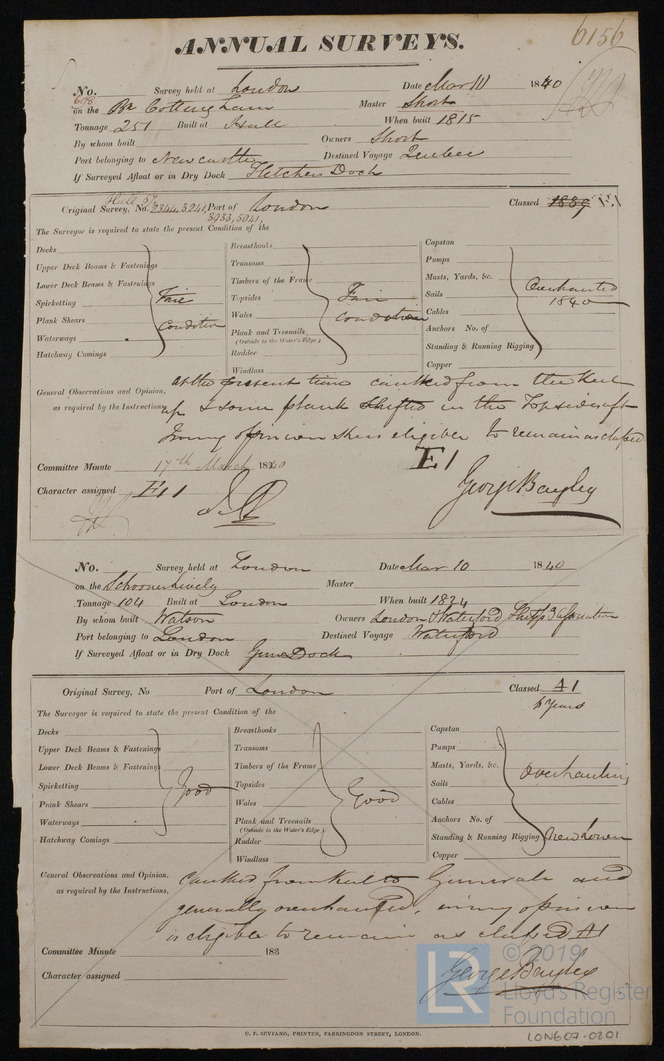 6156
ANNUAL SURVEYS.
No. Survey held at London Date Mar 10 1840
on the Br Cottingham Master Short
Tonnage 251 Built at Hull When built 1815
By whom built Owners Short
Port belonging to Newcastle Destined Voyage Quebec
If Surveyed Afloat or in Dry Dock Fletchers Dock
Original Survey, No. 2344, 3241, Port of London Classed 1839 E1
3933, 5041,
The Surveyor is required to state the present Condition of the
Decks
Upper Deck Beams & Fastenings
Lower Deck Beams & Fastenings
Spirketting
Plank Shears
Waterways
Hatchway Comings
Fair
condition
Breasthooks
Transoms
Timbers of the Frame
Topsides
Wales
Plank and Treenails
(Outside to the Water's Edge.)
Rudder
Windlass
Fair
condition
Capstan
Pumps
Masts, Yards, &c.
Sails
Cables
Anchors No. of
Standing & Running Rigging
Copper
Overhauled
1840
General Observations and Opinion,
as required by the Instructions,
at the present time caulked from the Keel
up & some plank shifted in the Topsides aft
In my opinion she is eligible to remain as classed
E1
Committee Minute 17th March 1840
Character assigned E1
George Bayley
No. Survey held at London Date Mar 10 1840
on the Schooner Lively Master
Tonnage 104 Built at London When built 1824
By whom built Watson Owners London & Waterford Ship
Port belonging to London Destined Voyage Waterford
If Surveyed Afloat or in Dry Dock Gun Dock
Original Survey, No Port of London Classed A1
6 Years
The Surveyor is required to state the present Condition of the
Decks
Upper Deck Beams & Fastenings
Lower Deck Beams & Fastenings
Spirketting
Plank Shears
Waterways
Hatchway Comings
Good
Breasthooks
Transoms
Timbers of the Frame
Topsides
Wales
Plank and Treenails
(Outside to the Water's Edge.)
Rudder
Windlass
Good
Capstan
Pumps
Masts, Yards, &c.
Sails
Cables
Anchors No. of
Standing & Running Rigging
Copper
Overhauling
New
General Observations and Opinion,
as required by the Instructions,
Caulked from Keel to Gunwale and
generally overhauled, in my opinion
is eligible to remain as classed A1
Committee Minute 183
Character assigned
George Bayley
C. F. SEYFANG, PRINTER, FARRINGDON STREET, LONDON.
LR
© 2019
Lloyd's Register
Foundation
LON607-0201